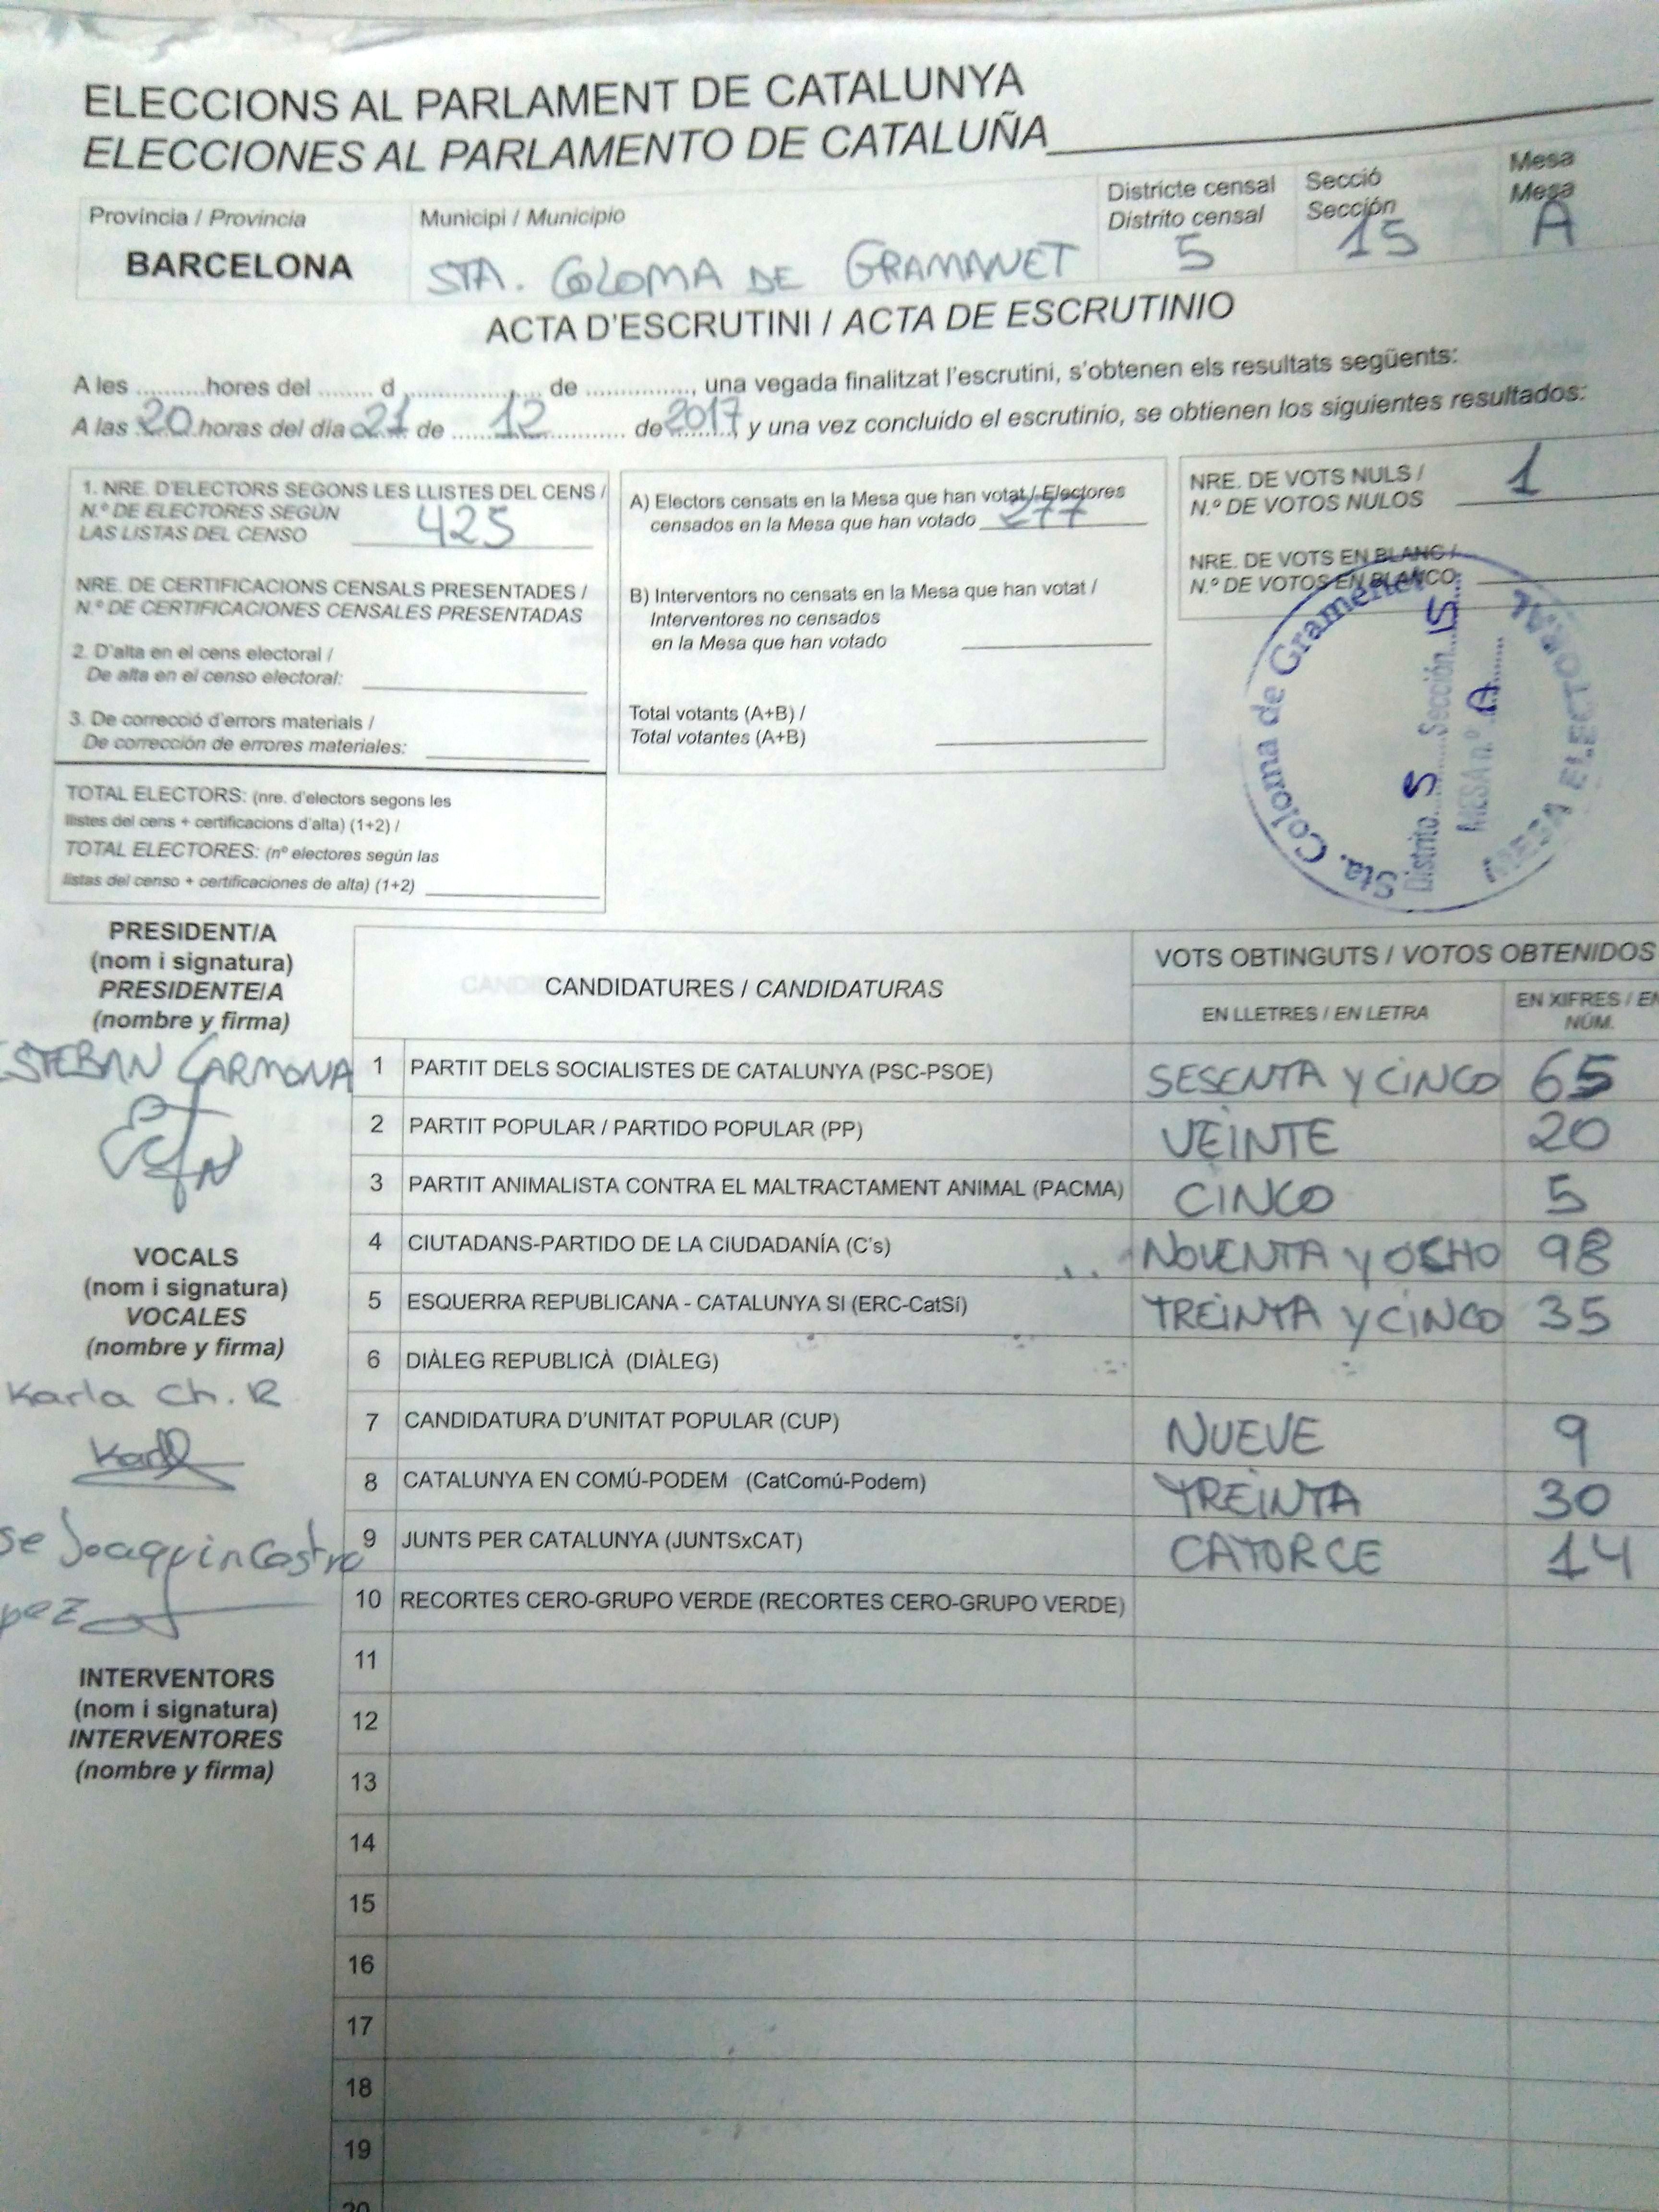 ELECCIONS AL PARLAMENT DE CATALUNYA
ELECCIONES AL PARLAMENTO DE CATALUÑA
Província / Provincia
BARCELONA
Municipi / Municipio
STA. COLOMA DE GRAMANET
Districte censal
Distrito censal
5
Secció
Sección
15
Mesa
Mesa
A
ACTA D'ESCRUTINI / ACTA DE ESCRUTINIO
A les ..........hores del ........ d .................... de ..............., una vegada finalitzat l'escrutini, s'obtenen els resultats següents:
A las 20 horas del dia 21 de 12 de 2017, y una vez concluido el escrutinio, se obtienen los siguientes resultados:
1. NRE. D'ELECTORS SEGONS LES LLISTES DEL CENS /
N.º DE ELECTORES SEGÚN
LAS LISTAS DEL CENSO 425
NRE. DE CERTIFICACIONS CENSALS PRESENTADES /
N.º DE CERTIFICACIONES CENSALES PRESENTADAS
2. D'alta en el cens electoral /
De alta en el censo electoral:
3. De correcció d'errors materials /
De corrección de errores materiales:
TOTAL ELECTORS: (nre. d'electors segons les
llistes del cens + certificacions d'alta) (1+2) /
TOTAL ELECTORES: (nº electores según las
listas del censo + certificaciones de alta) (1+2)
A) Electors censats en la Mesa que han votat / Electores
censados en la Mesa que han votado 277
B) Interventors no censats en la Mesa que han votat /
Interventores no censados
en la Mesa que han votado
Total votants (A+B) /
Total votantes (A+B)
NRE. DE VOTS NULS /
N.º DE VOTOS NULOS 1
NRE. DE VOTS EN BLANC /
N.º DE VOTOS EN BLANCO
Sta. Coloma de Gramenet
Distrito 5 Sección 15
MESA n.º A
MESA ELECTORAL
PRESIDENT/A
(nom i signatura)
PRESIDENTE/A
(nombre y firma)
ESTEBAN CARMONA
VOCALS
(nom i signatura)
VOCALES
(nombre y firma)
Karla Ch. R
Karl
se Joaquin Castro
pez
INTERVENTORS
(nom i signatura)
INTERVENTORES
(nombre y firma)
CANDIDATURES / CANDIDATURAS
VOTS OBTINGUTS / VOTOS OBTENIDOS
EN LLETRES / EN LETRA
EN XIFRES / EN
NÚM.
1 PARTIT DELS SOCIALISTES DE CATALUNYA (PSC-PSOE) SESENTA Y CINCO 65
2 PARTIT POPULAR / PARTIDO POPULAR (PP) VEINTE 20
3 PARTIT ANIMALISTA CONTRA EL MALTRACTAMENT ANIMAL (PACMA) CINCO 5
4 CIUTADANS-PARTIDO DE LA CIUDADANÍA (C's) NOVENTA Y OCHO 98
5 ESQUERRA REPUBLICANA - CATALUNYA SI (ERC-CatSí) TREINTA Y CINCO 35
6 DIÀLEG REPUBLICÀ (DIÀLEG)
7 CANDIDATURA D'UNITAT POPULAR (CUP) NUEVE 9
8 CATALUNYA EN COMÚ-PODEM (CatComú-Podem) TREINTA 30
9 JUNTS PER CATALUNYA (JUNTSxCAT) CATORCE 14
10 RECORTES CERO-GRUPO VERDE (RECORTES CERO-GRUPO VERDE)
11
12
13
14
15
16
17
18
19
20